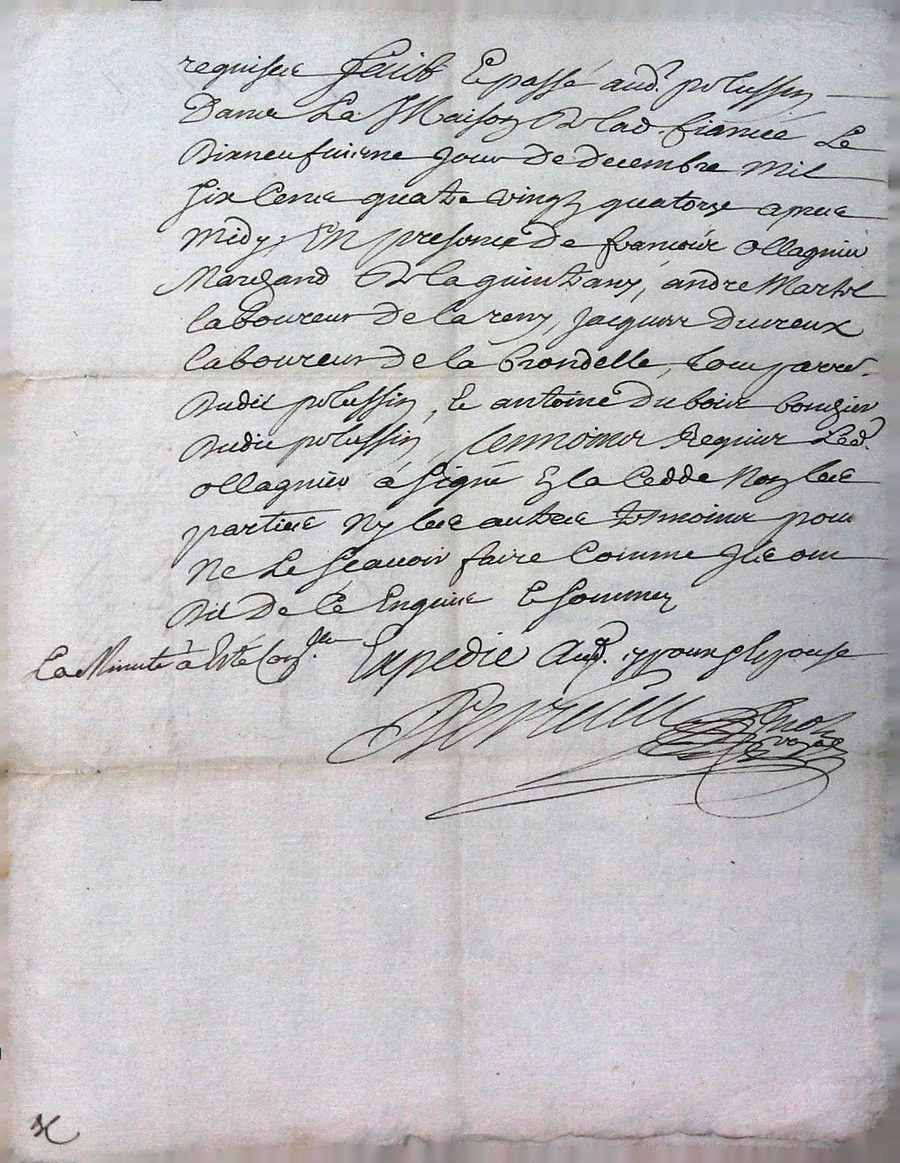 requises faict Et passé aud. pelussin
Dans La Maison De lad. fiancée Le
Dixneufuieme Jour de decembre mil
six Cens quatre vingt quatorze apres
midy, En presence de francois ollagnier
Marchand De la guintany, andre Martel
laboureur de la reny, Jacques Ducreux
laboureur de la brondelle, tous parre.
Dudit pelussin, Et antoine Du bois
Dudit pelussin, tesmoins Requis Led.
ollagnier à signé Et la Cedde Non les
parties Ny les autres tesmoins pour
Ne Le scauoir faire Comme Ils ont
Dit De Ce Enquis Et sommez
La Minute à Esté Con.lee Expedié Aud. espouse